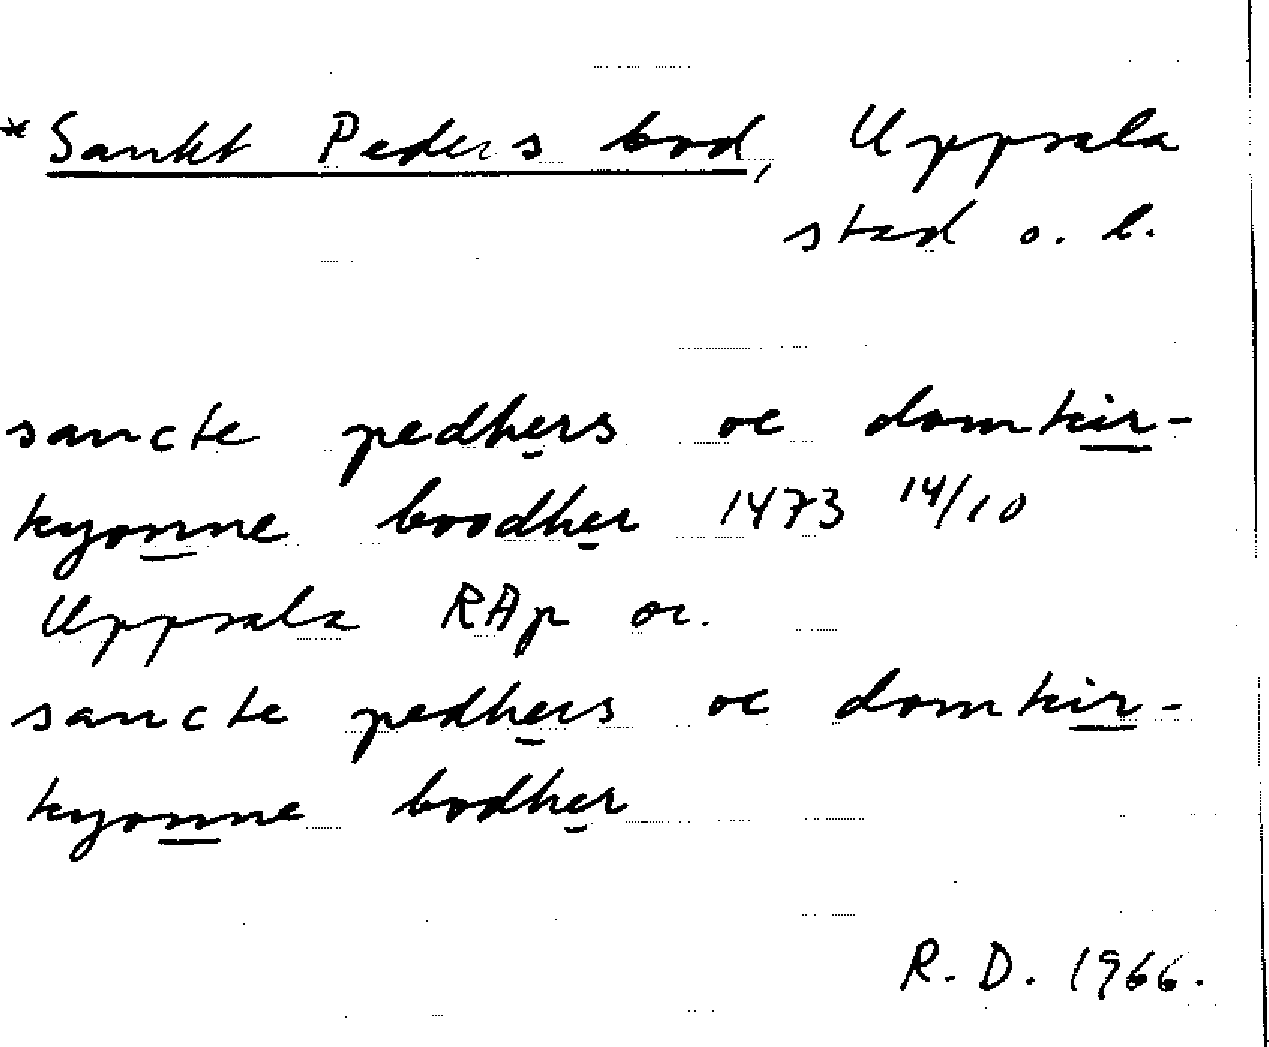 *Sankt Peders bod, Uppsala
stad o. l.
sancte pedhers oc domkir-
kyonne boodher 1473 14/10
Uppsala RAp or.
sancte pedhers oc domkir-
kyonne bodher
R. D. 1966.